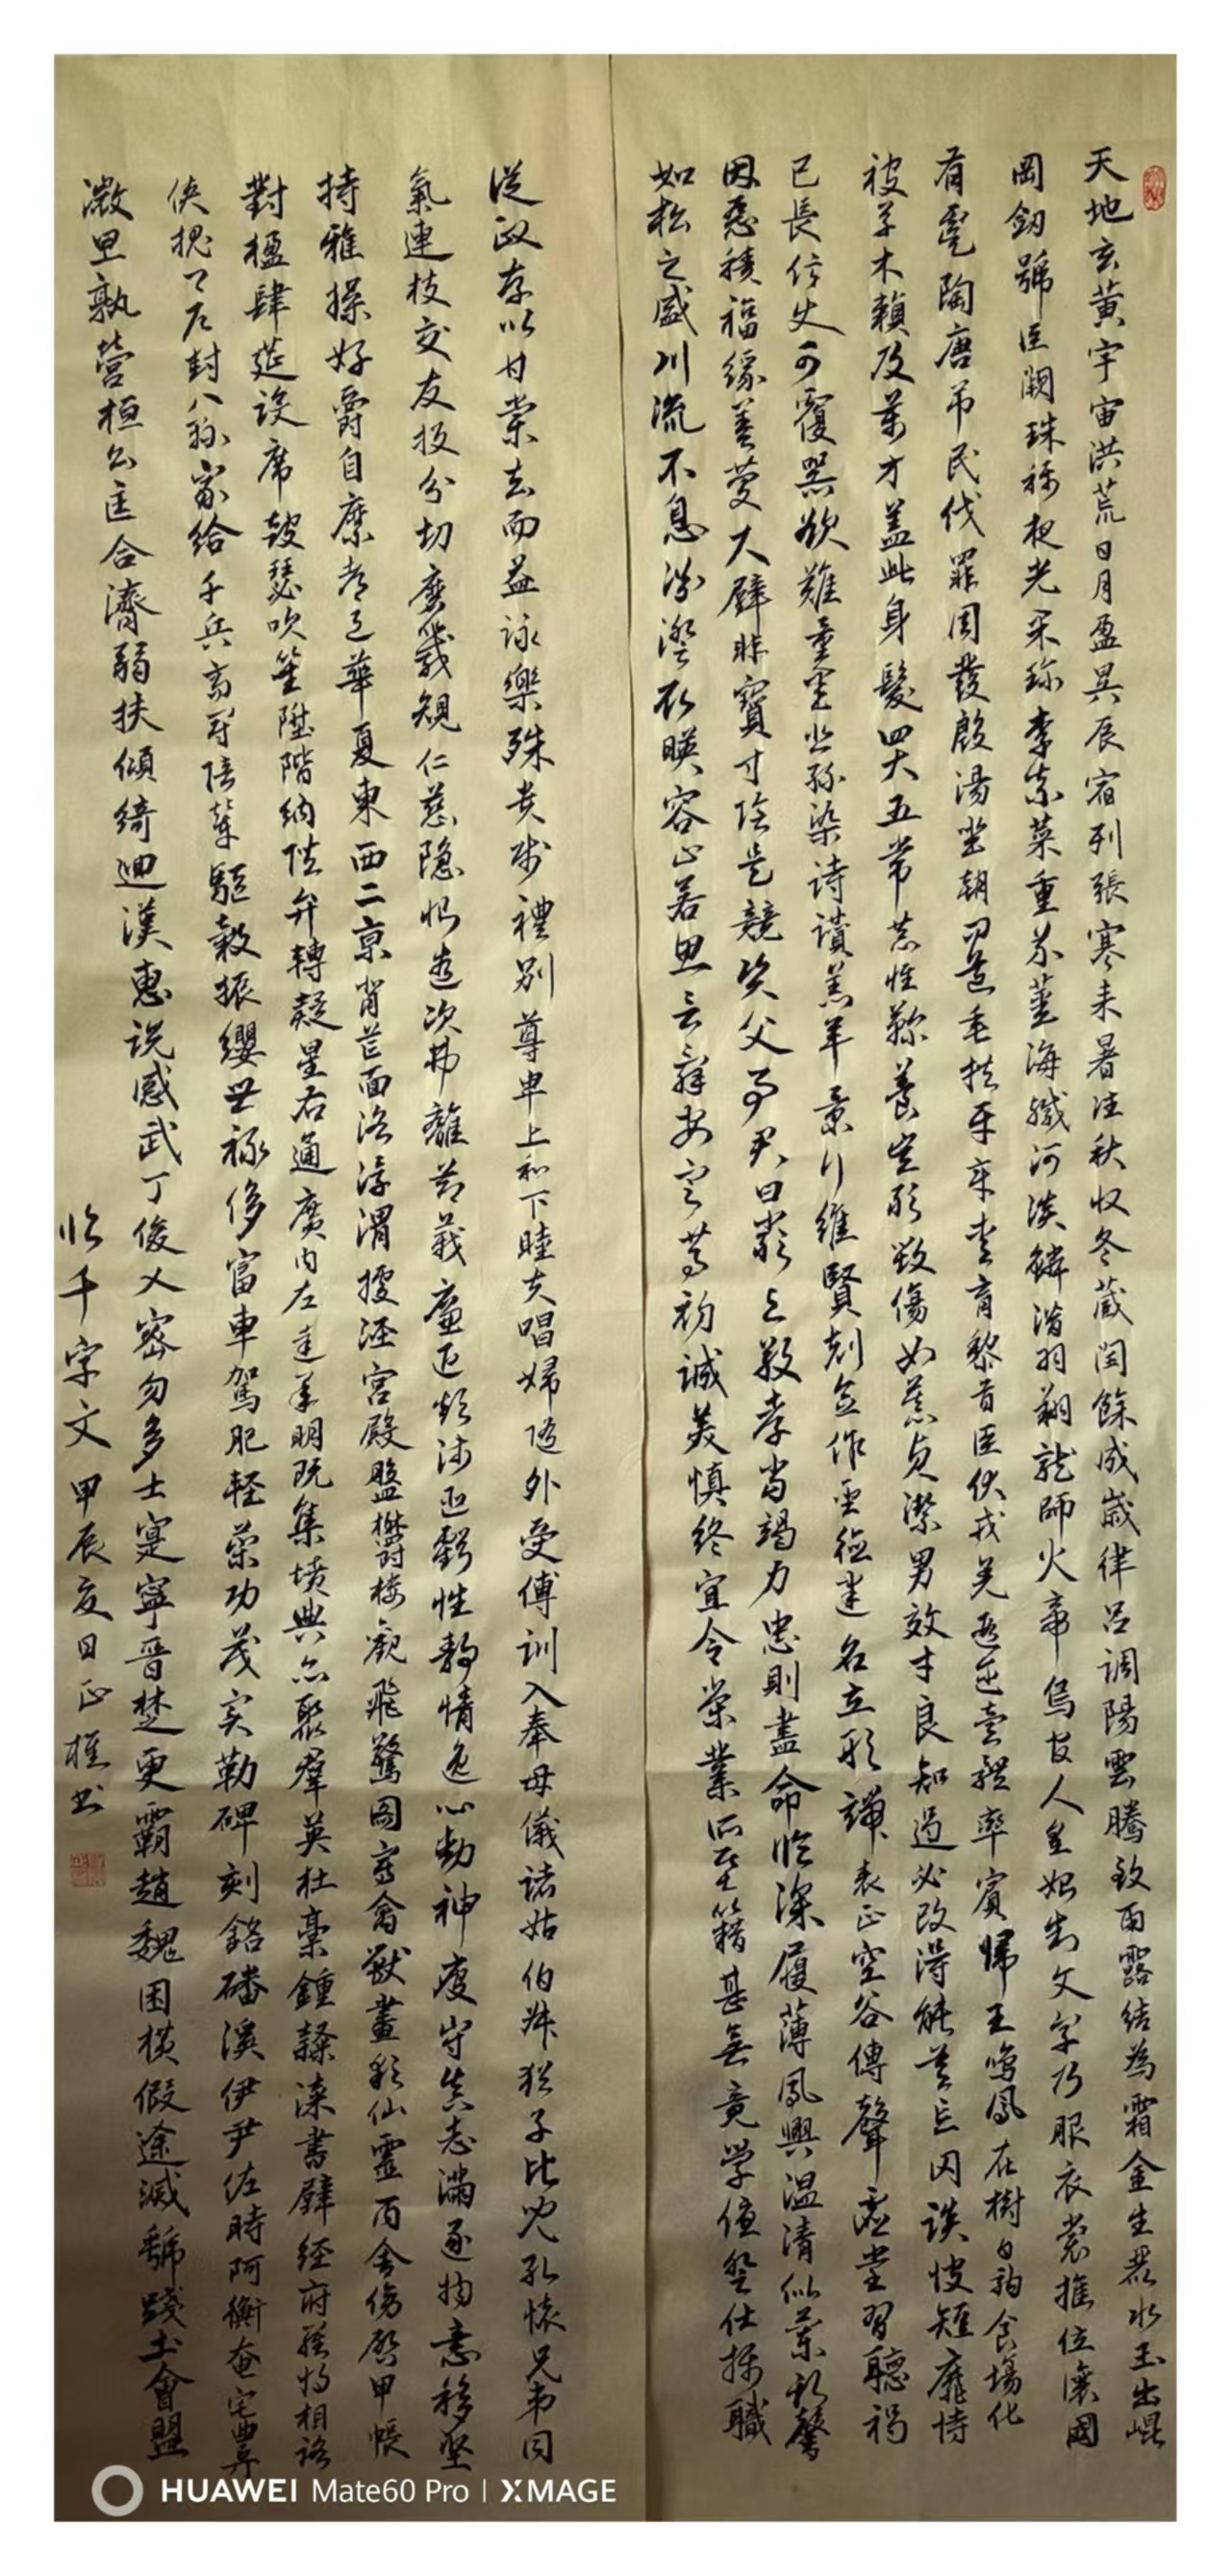 天地玄黄宇宙洪荒日月盈昃辰宿列張寒来暑往秋收冬蔵閏餘成歳律吕調陽雲騰致雨露結為霜金生麗水玉出崐
岡劒號巨闕珠稱夜光果珎李柰菜重芥薑海鹹河淡鱗潛羽翔龍師火帝鳥官人皇始制文字乃服衣裳推位讓國
有虞陶唐弔民伐罪周發殷湯坐朝問道垂拱平章愛育黎首臣伏戎羌遐迩壹體率賓歸王鳴鳳在樹白駒食場化
被草木賴及萬方盖此身髮四大五常恭惟鞠養豈敢毀傷女慕貞潔男效才良知過必改得能莫忘罔談彼短靡恃
己長信使可覆器欲難量墨悲絲染詩讚羔羊景行維賢剋念作聖德建名立形端表正空谷傳聲虚堂習聽禍
因惡積福緣善慶尺璧非寶寸陰是競資父事君曰嚴与敬孝當竭力忠則盡命臨深履薄夙興温凊似蘭斯馨
如松之盛川流不息淵澄取暎容止若思言辭安定篤初誠美慎終宜令榮業所基籍甚無竟學優登仕攝職
從政存以甘棠去而益詠樂殊貴賤禮別尊卑上和下睦夫唱婦随外受傅訓入奉母儀諸姑伯叔猶子比兒孔懷兄弟同
氣連枝交友投分切磨箴規仁慈隐惻造次弗離節義廉退顛沛匪虧性静情逸心動神疲守真志滿逐物意移堅
持雅操好爵自縻都邑華夏東西二京背芒面洛浮渭據泾宫殿盤欝樓觀飛驚圖寫禽獸畫彩仙靈丙舍傍啓甲帳
對楹肆筵設席鼓瑟吹笙陞階納陛弁轉疑星右通廣内左達承明既集墳典亦聚群英杜稾鍾隸漆書壁経府羅將相路
侠槐卿户封八縣家給千兵高冠陪輦驅轂振纓世禄侈富車駕肥輕策功茂实勒碑刻銘磻溪伊尹佐時阿衡奄宅曲阜
微旦孰營桓公匡合濟弱扶傾綺迴漢惠説感武丁俊乂密勿多士寔寧晋楚更霸趙魏困横假途滅虢踐土會盟
临千字文甲辰夏日正權书
HUAWEI Mate60 Pro | XMAGE